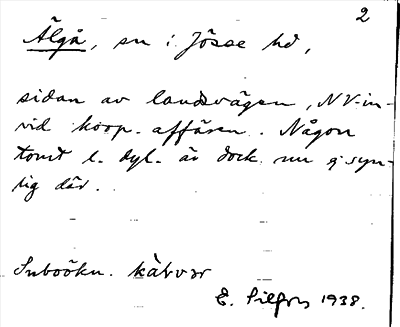 2
Älgå, sn i Jösse hd,
sidan av landsvägen, NV-in-
vid koop. affären. Någon
tomt l. dyl. är dock nu ej syn-
lig där.
Inboökn. kàtvər
E. 1938.